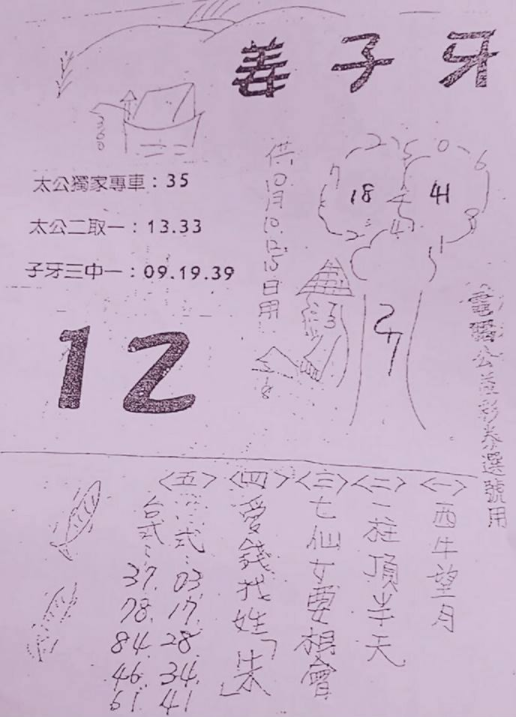 姜子牙
太公獨家專車：35
太公二取一：13.33
子牙三中一：09.19.39
12
供10月10.12.15日用
18
41
27
電腦公益彩券選號用
〈一〉西牛望月
〈二〉一柱頂半天
〈三〉七仙女要相會
〈四〉愛錢找姓「朱」
〈五〉
式：03.17.28.34.41
台式：37.78.84.46.61